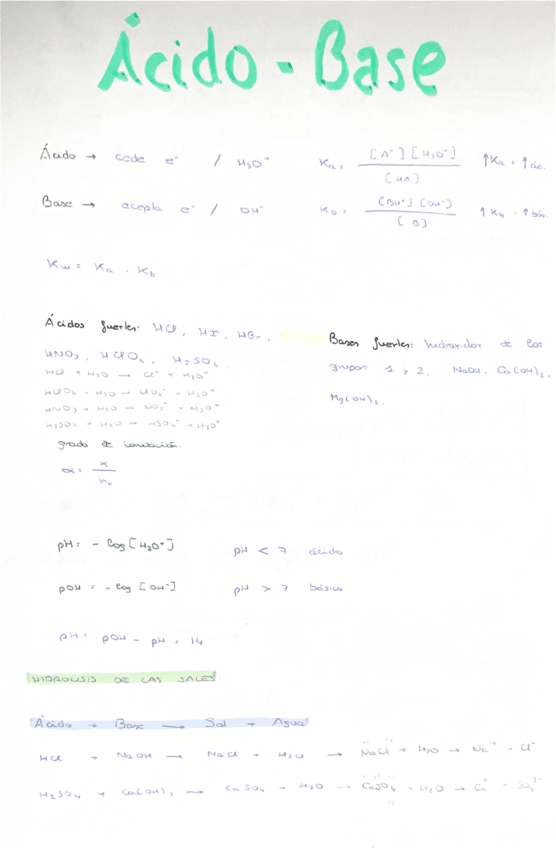 Ácido - Base
Ácido → cede e⁻ / H₃O⁺ Ka = [A⁻] [H₃O⁺] / [HA] ↑Ka = ↑ác.
Base → acepta e⁻ / OH⁻ Kb = [BH⁺] [OH⁻] / [B] ↑Kb = ↑bás.
Kw = Ka · Kb
Ácidos fuertes: HCl, HI, HBr,
HNO₃, HClO₄, H₂SO₄.
HCl + H₂O → Cl⁻ + H₃O⁺
HClO₄ + H₂O → ClO₄⁻ + H₃O⁺
HNO₃ + H₂O → NO₃⁻ + H₃O⁺
H₂SO₄ + H₂O → HSO₄⁻ + H₃O⁺
Bases fuertes: hidróxidos de los
grupos 1 y 2. NaOH, Ca(OH)₂,
Mg(OH)₂.
grado de ionización.
α = x / n₀
pH = - log [H₃O⁺] pH < 7 ácido
pOH = - log [OH⁻] pH > 7 básico
pH = pOH - pH = 14
HIDRÓLISIS DE LAS SALES
Ácido + Base → Sal + Agua
HCl + NaOH → NaCl + H₂O → NaCl + H₂O → Na⁺ + Cl⁻
H₂SO₄ + Ca(OH)₂ → CaSO₄ + H₂O → CaSO₄ + H₂O →